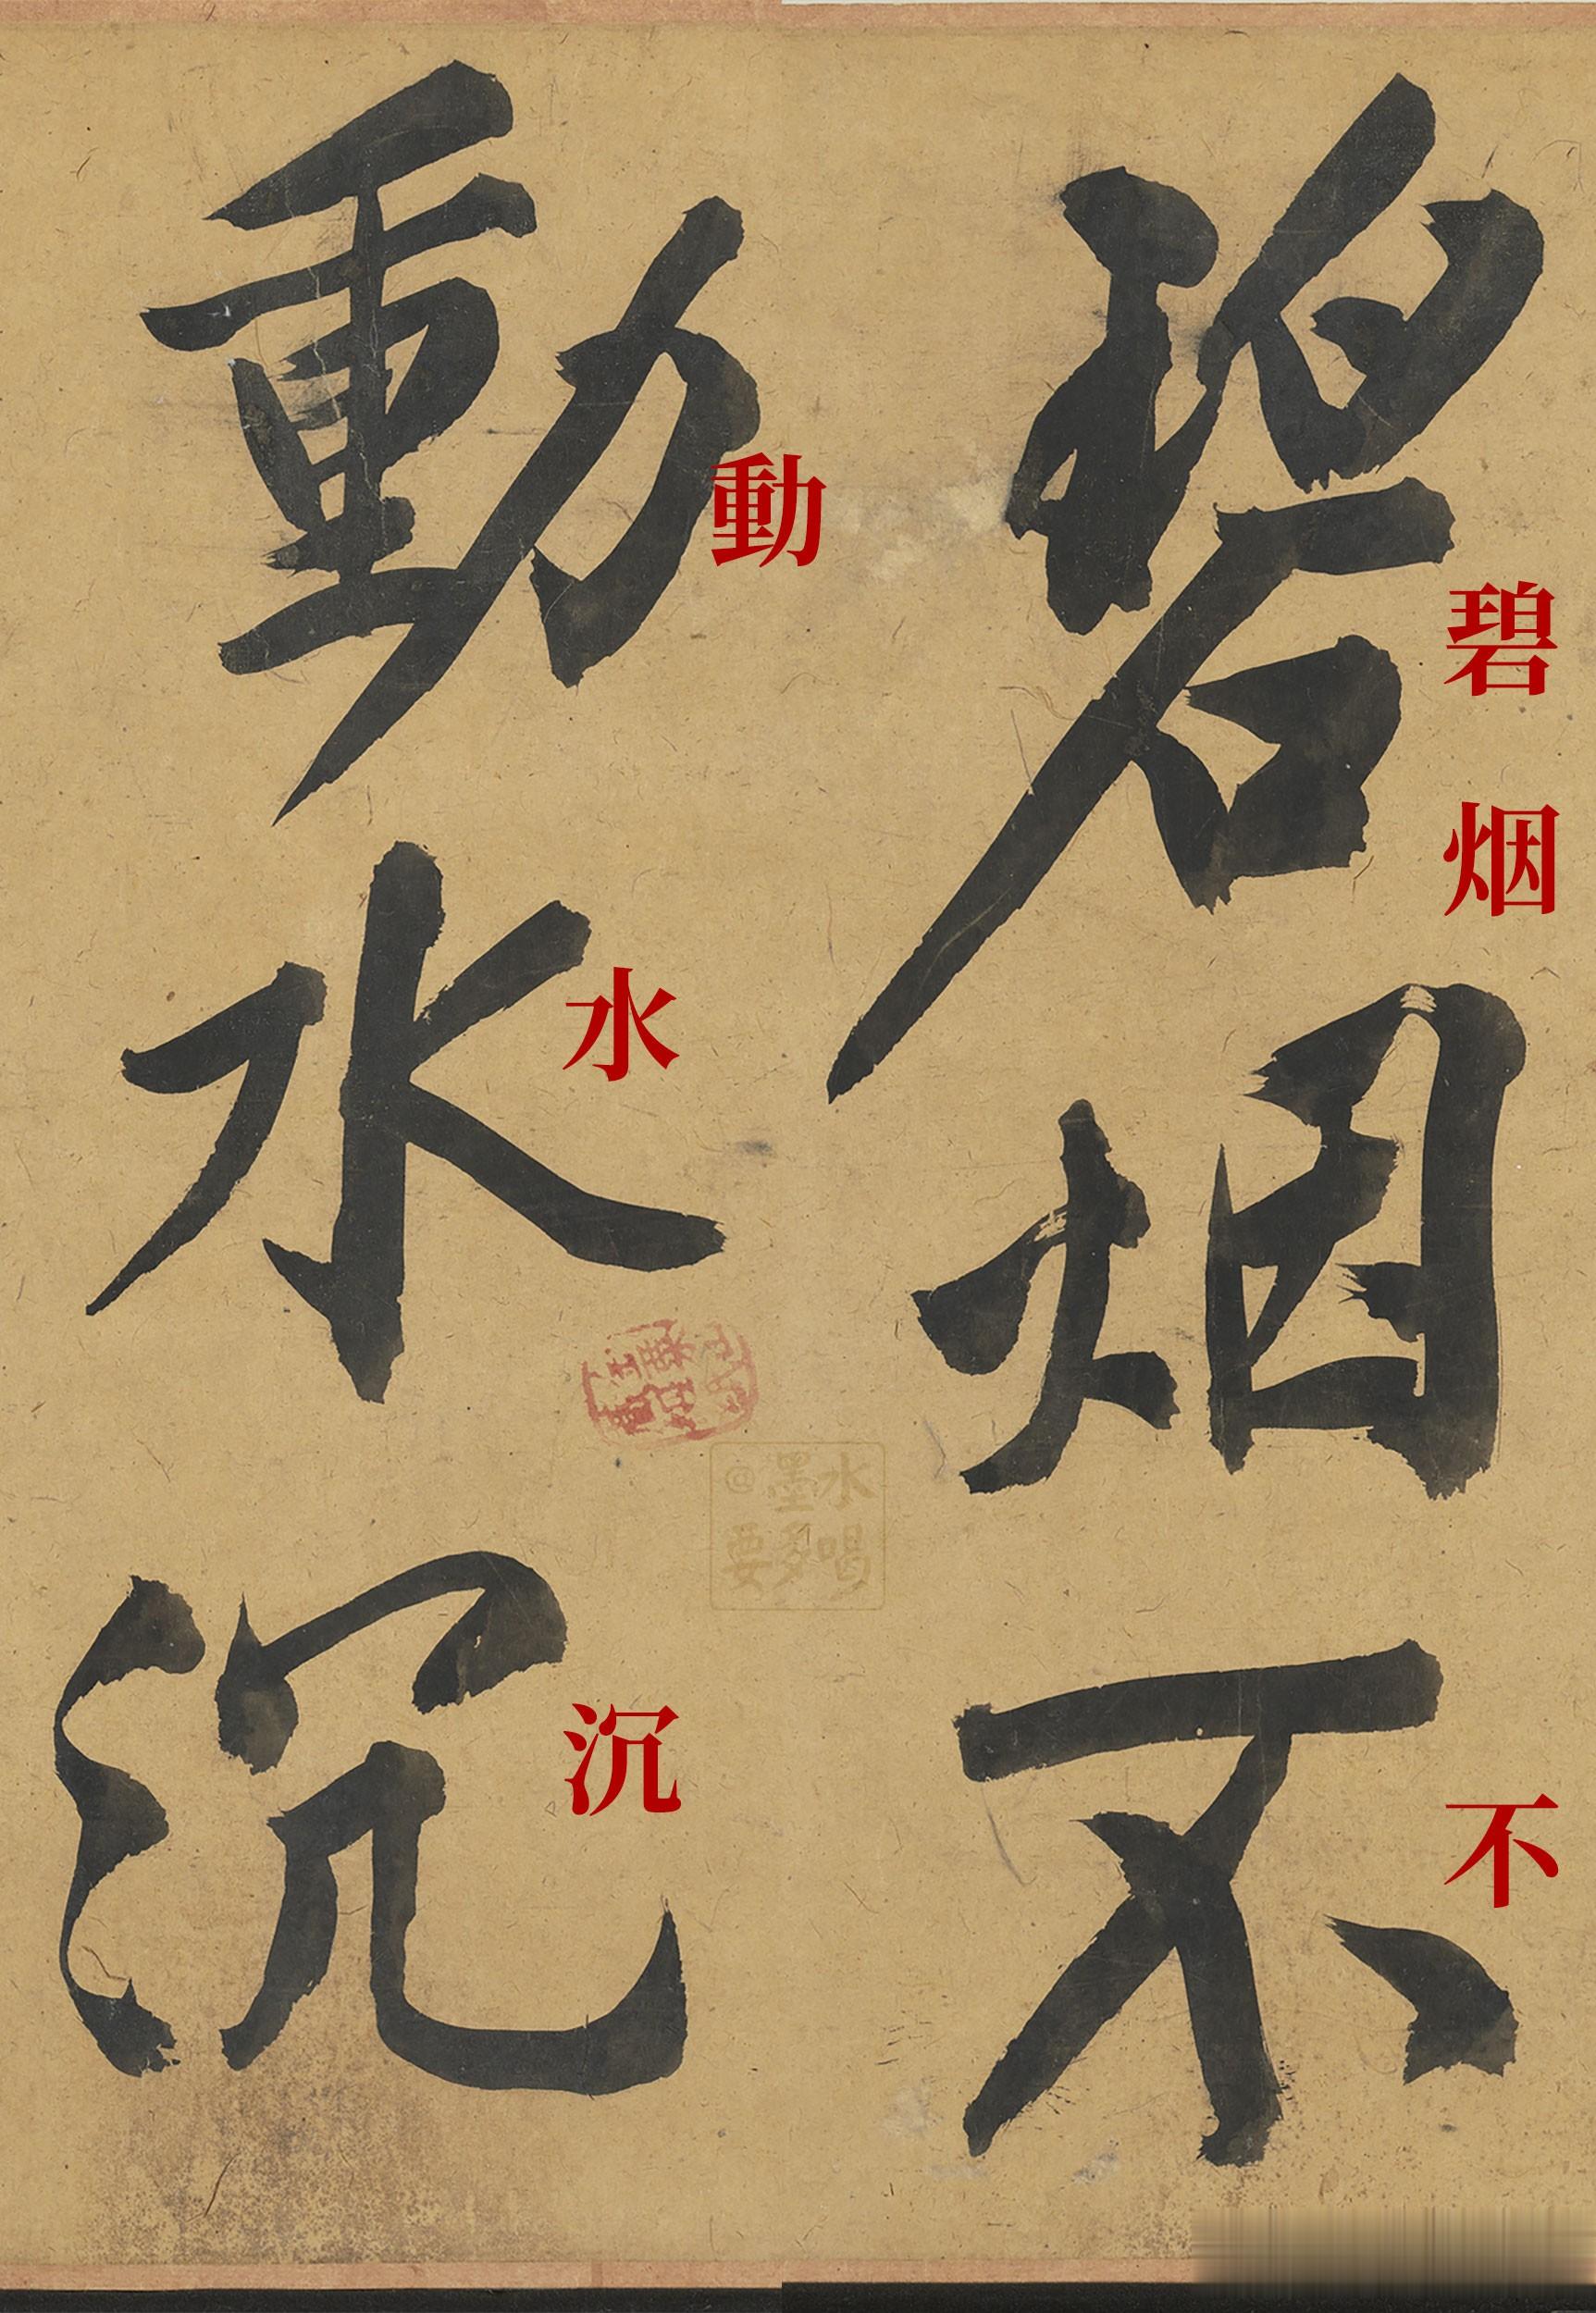 碧烟不
動水沉
碧
烟
不
動
水
沉
@墨水
要多喝